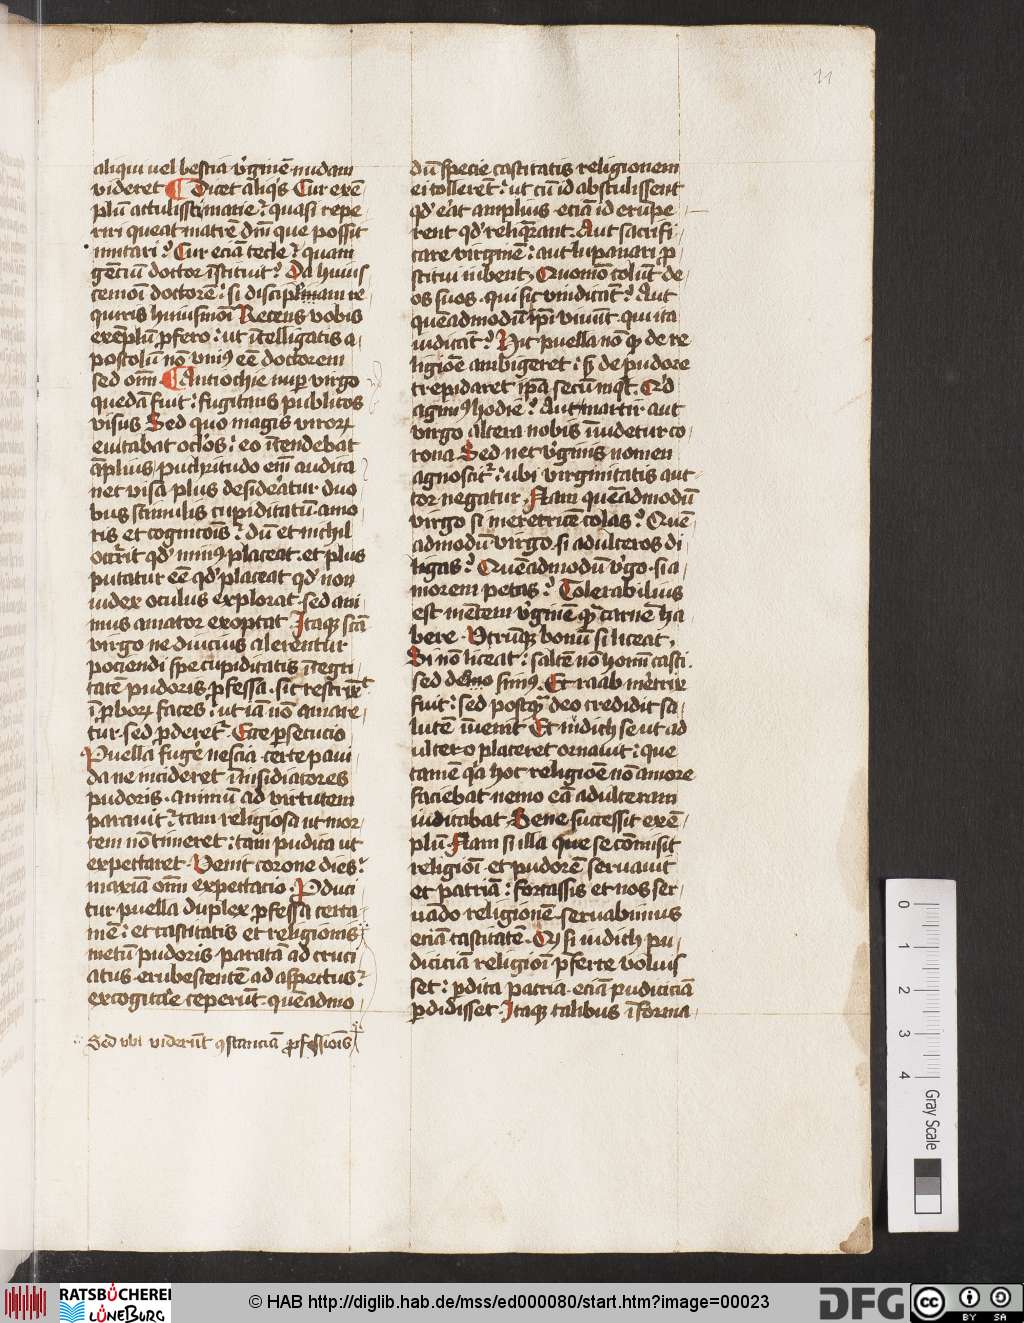 11
aliqui uel bestia v'ginē nudam
videret Dicet aliq's Cur exē¬
plū attulisti marie? quasi repe¬
riri queat matrē dm̄ que possit
imitari? Cur eciā tecle? quam
gēciū doctor īstituit? Da huius¬
cemoi doctorē: si disciplinam re¬
quiris huiusmoi Recens vobis
exēplū ꝓfero: ut ītelligatis a¬
postolū nō vniꝰ eē doctorem
sed oīm Antiochie nuꝑ virgo
quedā fuit: fugitans publicos
visus Sed quo magis viroꝝ
euitabat oclōs: eo ītendebat
āplius pulchritudo em̄ audita
nec visa plus desiderātur duo
bus stimulis cupiditatū amo
ris et cognicōis: dū et nichil
occ̄rit qd' minꝰ placeat et plus
putatur eē qd' placeat qd' non
iudex oculus explorat sed ani
mus amator exoptat Itaqꝫ scā
virgo ne diucius alerentur
pociendi spe cupiditatis ītegri
tatē pudoris ꝓfessa sic restrīxit
īꝓboꝝ faces: ut iā nō amare¬
tur sed ꝓderet᷑ Ecce ꝑsecucio
Puella fuge' nescia certe paui
da ne incideret ī īsidiatores
pudoris animū ad virtutem
parauit: tam religiosa ut mor¬
tem nō timeret: tam pudica ut
expectaret Venit corone dies:
maxīa oīm expectacio Pduci
tur puella duplex ꝓfessa certa¬
mē: et castitatis et religionis
metū pudoris paratā ad cruci
atus erubescentē ad aspectus:
excogitare ceperūt quēadmo
Sed vbi viderūt ꝯstanciā ꝓfessiōis
dū specie castitatis religionem
ei tollerēt: ut cū id abstulissent
qd' e'at amplius eciā id erupe¬
rent qd' reliquerant Aut sacrifi¬
care virginē: aut lupanari ꝓ
stitui iubent Quomō colūt de¬
os suos qui sic vindicāt? Aut
quēadmodū ip̄i viuūt qui ita
iudicāt? Hic puella nō qꝫ de re
ligiōe ambigeret: sꝫ de pudore
trepidaret ip̄a secū inqt Qd'
agimꝰ hodie? Aut martir aut
virgo altera nobis īuidetur co¬
rona Sed nec v'ginis nomen
agnoscit᷑: ubi virginitatis auc¬
tor negatur Nam quēadmodū
virgo si meretricē colas? Quē¬
admodū virgo si adulteros di¬
ligas? Quēadmodū v'go si a¬
morem petas? Tolerabilius
est mētem v'ginē qꝫ carnē ha¬
bere Vtrūqꝫ bonū si liceat
Si nō liceat: saltē nō hoīm casti
sed deo simꝰ Et raab me'trix
fuit: sed postqꝫ deo credidit sa¬
lutē īuenit Et iudich se ut ad
ultero placeret ornauit: que
tamē q'a hoc religiōe nō amore
faciebat nemo eā adulteram
iudicabat Bene successit exē¬
plū Nam si illa que se cōmisit
religioi et pudorē seruauit
et patriā: fortassis et nos ser¬
uādo religionē seruabimus
eciā castitatē Qꝫ si iudich pu¬
diciciā religioi ꝓferre voluis¬
set: ꝑdita patria eciā pudiciciā
ꝑdidisset Itaqꝫ talibus īforma
0 1 2 3 4
Gray Scale
RATSBÜCHEREI
LÜNEBURG
© HAB http://diglib.hab.de/mss/ed000080/start.htm?image=00023
DFG
cc
BY SA